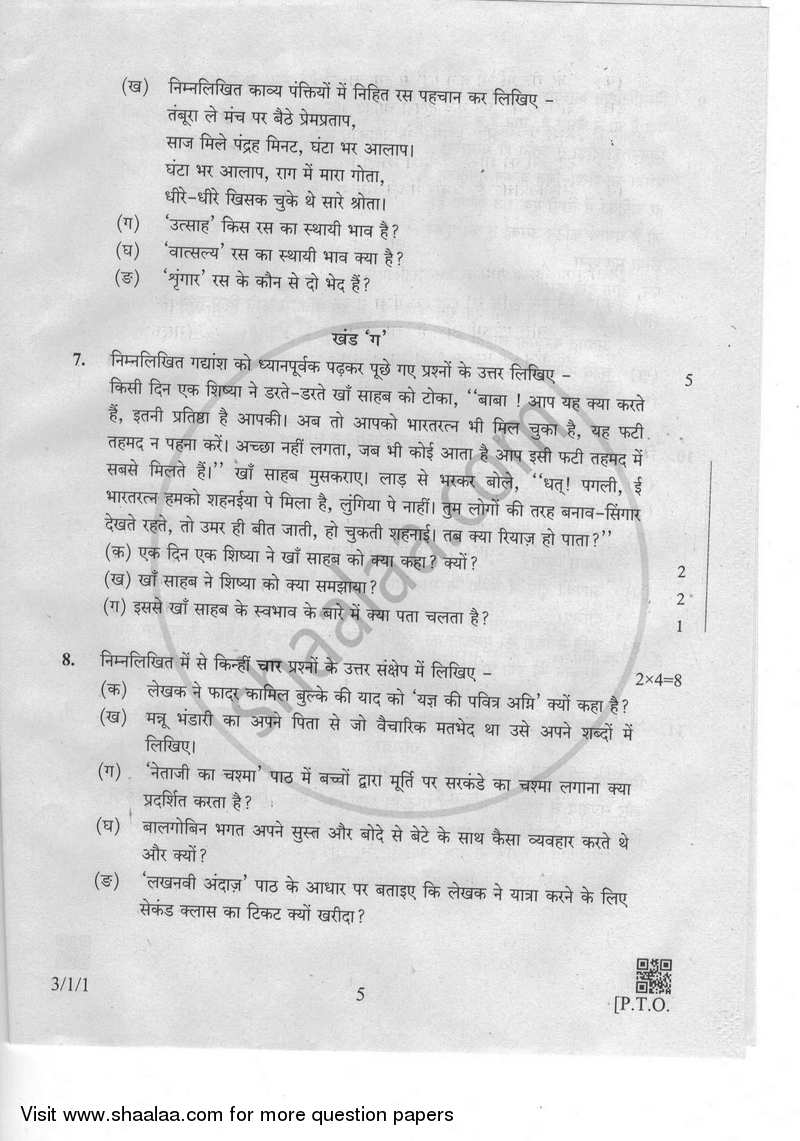 (ख) निम्नलिखित काव्य पंक्तियों में निहित रस पहचान कर लिखिए –
तंबूरा ले मंच पर बैठे प्रेमप्रताप,
साज मिले पंद्रह मिनट, घंटा भर आलाप।
घंटा भर आलाप, राग में मारा गोता,
धीरे-धीरे खिसक चुके थे सारे श्रोता।
(ग) ‘उत्साह’ किस रस का स्थायी भाव है?
(घ) ‘वात्सल्य’ रस का स्थायी भाव क्या है?
(ङ) ‘श्रृंगार’ रस के कौन से दो भेद हैं?
खंड ‘ग’
7. निम्नलिखित गद्यांश को ध्यानपूर्वक पढ़कर पूछे गए प्रश्नों के उत्तर लिखिए – 5
किसी दिन एक शिष्या ने डरते-डरते खाँ साहब को टोका, ‘‘बाबा ! आप यह क्या करते
हैं, इतनी प्रतिष्ठा है आपकी। अब तो आपको भारतरत्न भी मिल चुका है, यह फटी
तहमद न पहना करें। अच्छा नहीं लगता, जब भी कोई आता है आप इसी फटी तहमद में
सबसे मिलते हैं।’’ खाँ साहब मुसकराए। लाड़ से भरकर बोले, ‘‘धत्! पगली, ई
भारतरत्न हमको शहनईया पे मिला है, लुंगिया पे नाहीं। तुम लोगों की तरह बनाव-सिंगार
देखते रहते, तो उमर ही बीत जाती, हो चुकती शहनाई। तब क्या रियाज़ हो पाता?’’
(क) एक दिन एक शिष्या ने खाँ साहब को क्या कहा? क्यों? 2
(ख) खाँ साहब ने शिष्या को क्या समझाया? 2
(ग) इससे खाँ साहब के स्वभाव के बारे में क्या पता चलता है? 1
8. निम्नलिखित में से किन्हीं चार प्रश्नों के उत्तर संक्षेप में लिखिए – 2×4=8
(क) लेखक ने फादर कामिल बुल्के की याद को ‘यज्ञ की पवित्र अग्नि’ क्यों कहा है?
(ख) मन्नू भंडारी का अपने पिता से जो वैचारिक मतभेद था उसे अपने शब्दों में
लिखिए।
(ग) ‘नेताजी का चश्मा’ पाठ में बच्चों द्वारा मूर्ति पर सरकंडे का चश्मा लगाना क्या
प्रदर्शित करता है?
(घ) बालगोबिन भगत अपने सुस्त और बोदे से बेटे के साथ कैसा व्यवहार करते थे
और क्यों?
(ङ) ‘लखनवी अंदाज़’ पाठ के आधार पर बताइए कि लेखक ने यात्रा करने के लिए
सेकंड क्लास का टिकट क्यों खरीदा?
shaalaa.com
3/1/1
5
[P.T.O.
Visit www.shaalaa.com for more question papers